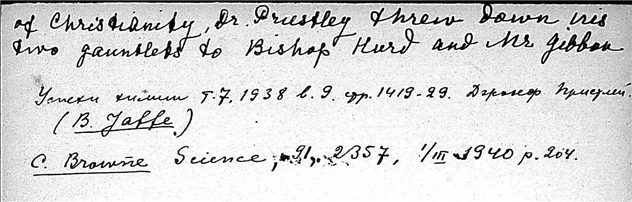 of Christianity, Dr. Priestley threw down his
two gauntlets to Bishop Hurd and Mr Gibbon
Успехи химии т.7, 1938 в.9. стр. 1419-29. Джозеф Пристлей.
(B. Jaffe.)
C. Browne Science, 91, 2357, 1/III 1940 p. 204.